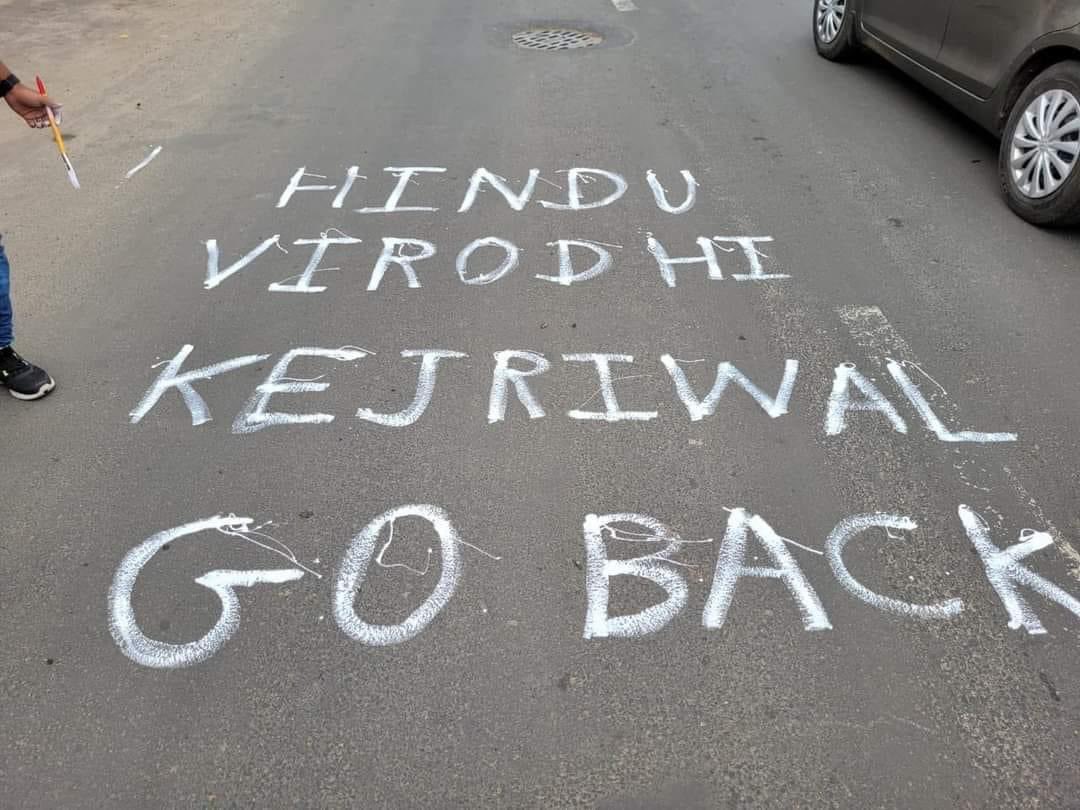 HINDU
VIRODHI
KEJRIWAL
GO BACK